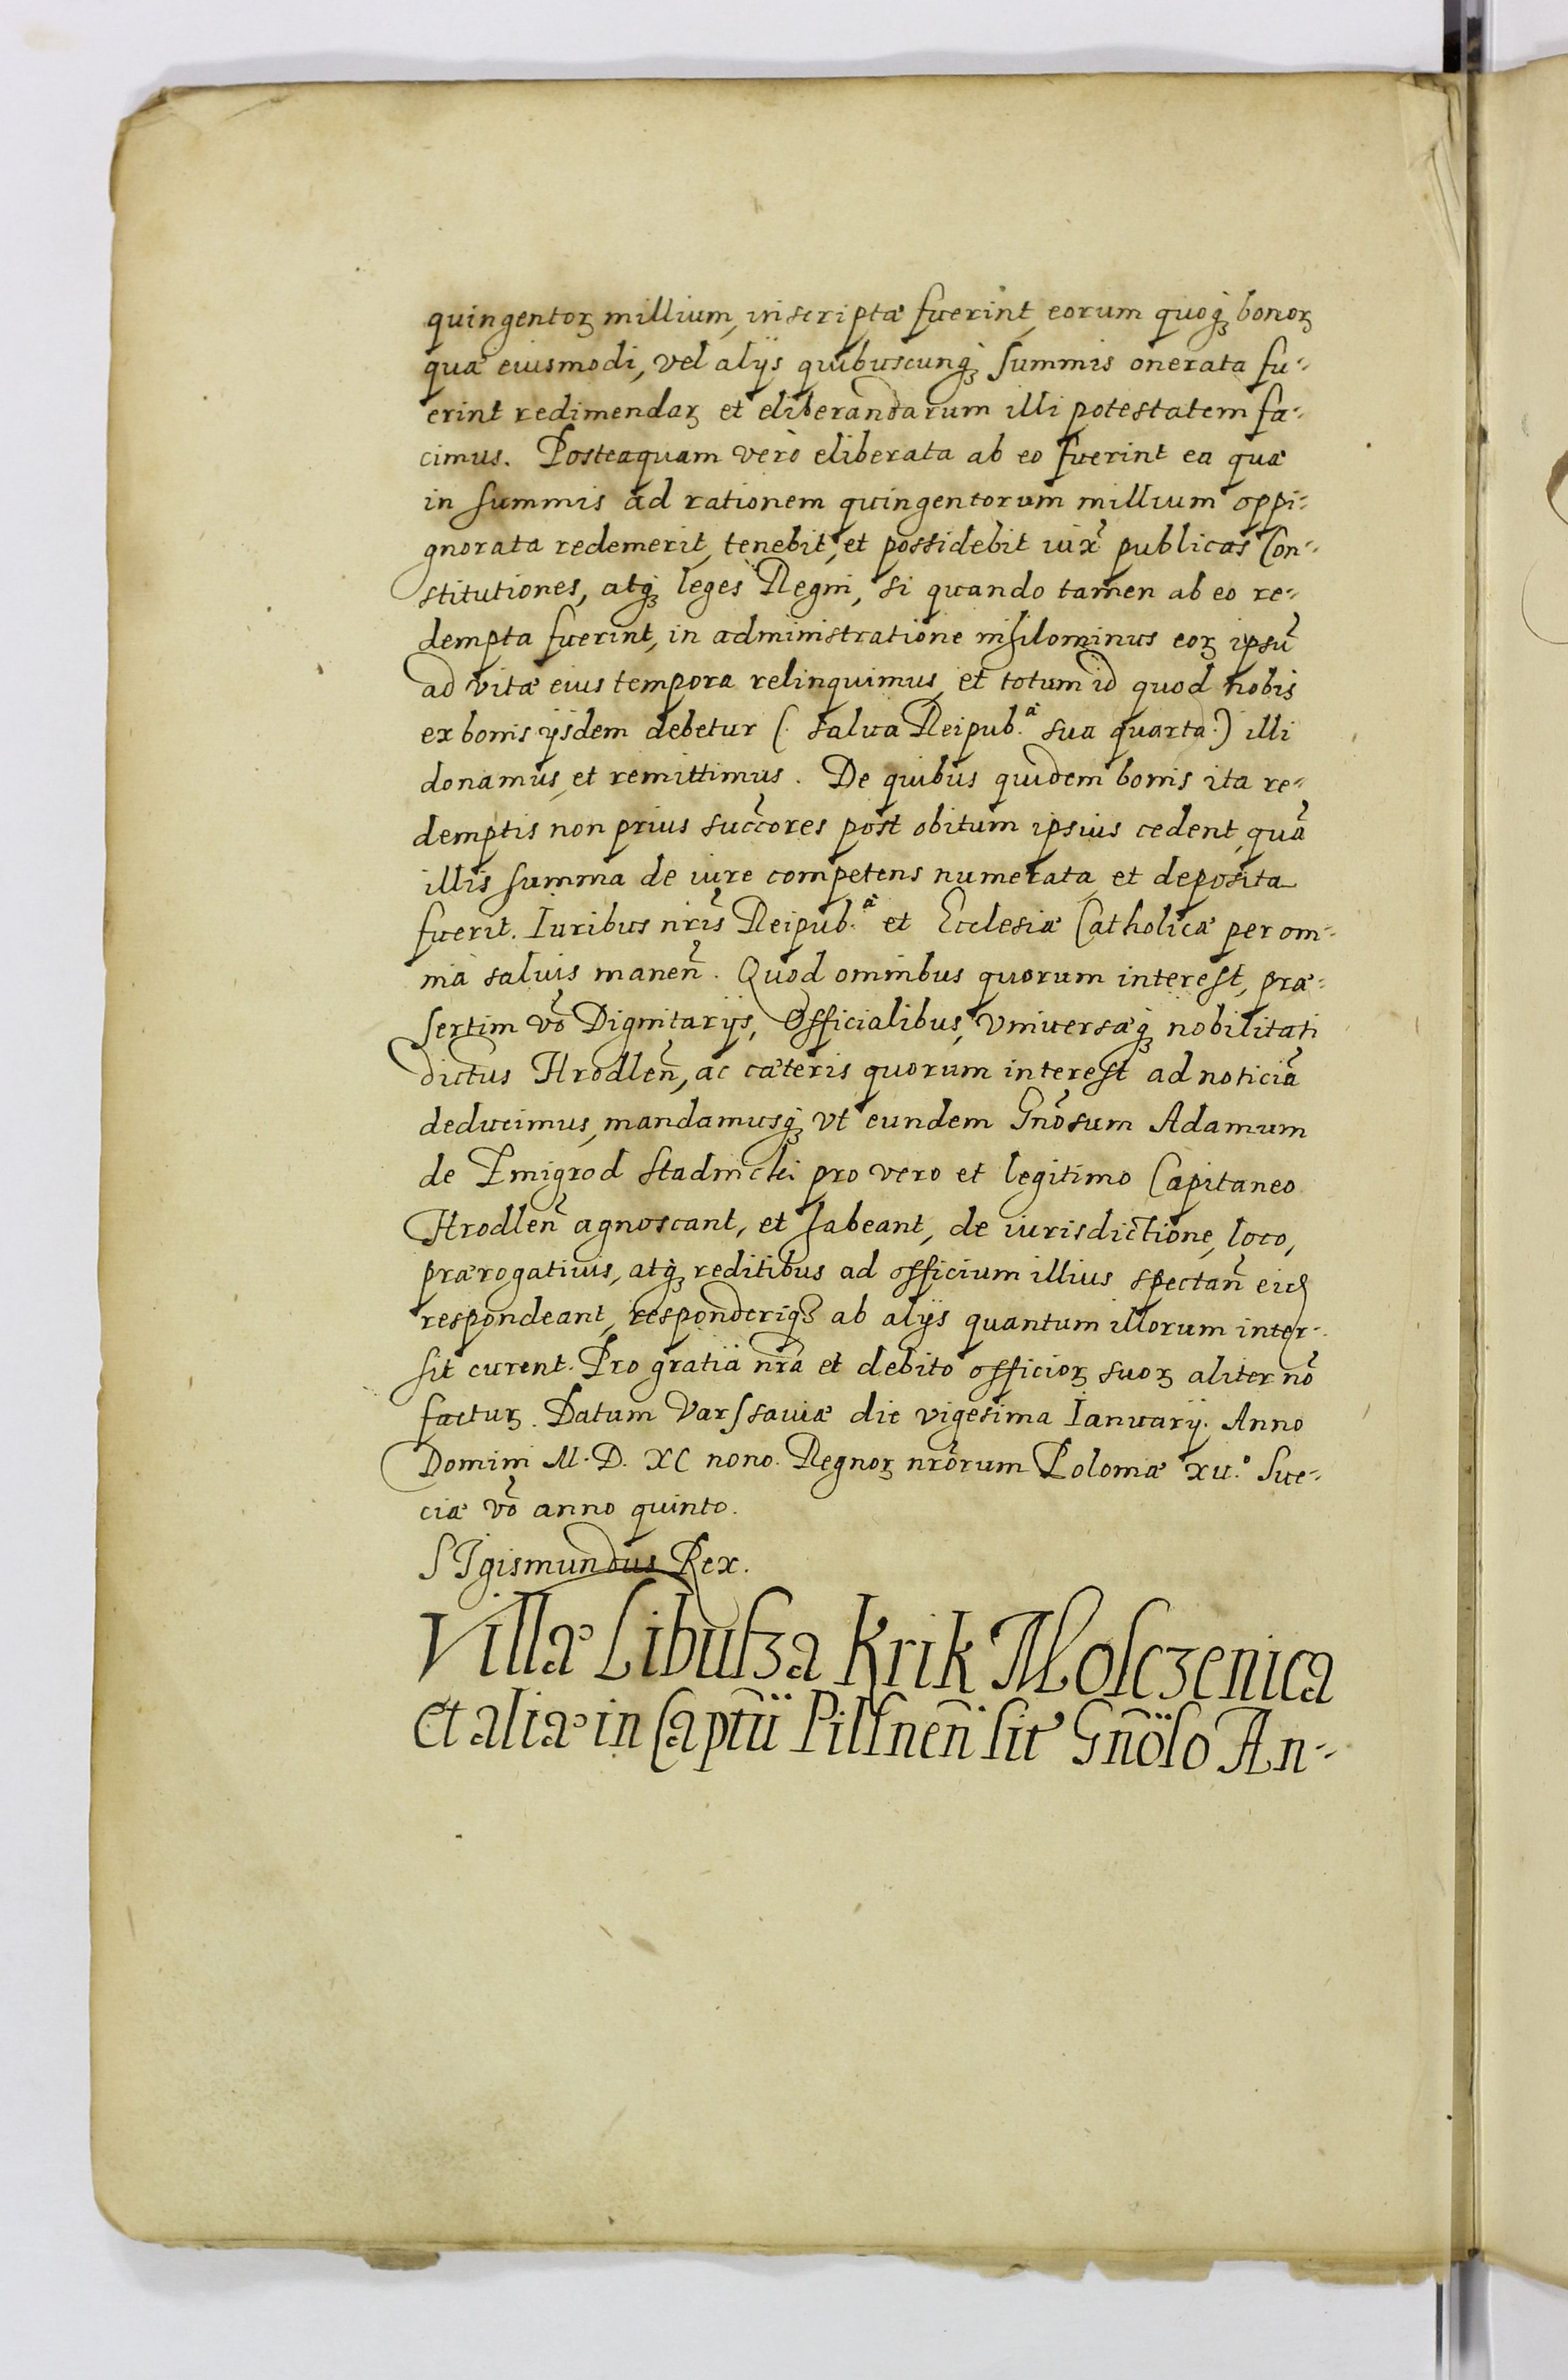 quingentoꝝ millium, inscriptæ fuerint, eorum quoqꝫ bonoꝝ
quæ eiusmodi, vel alijs quibuscunqꝫ summis onerata fu-
erint redimendaꝝ et eliberandarum illi potestatem fa-
cimus. Posteaquam verò eliberata ab eo fuerint ea quæ
in summis ad rationem quingentorum millium oppi-
gnorata redemerit, tenebit, et possidebit iux̃ publicas Con-
stitutiones, atqꝫ leges Regni, si quando tamen ab eo re-
dempta fuerint, in administratione nihilominus eoꝝ ipsũ
ad vitæ eius tempora relinquimus, et totum id quod nobis
ex bonis ijsdem debetur (: salua Reipub.ᵃ sua quarta:) illi
donamus, et remittimus. De quibus quidem bonis ita re-
demptis non prius succ̃ores post obitum ipsius cedent, quã
illis summa de iure competens numerata, et deposita
fuerit. Iuribus nr̃is Reipub.ᵃ et Ecclesiæ Catholicæ per om-
nia saluis manen̄. Quod omnibus quorum interest, præ-
sertim vō Dignitarijs, Officialibus, vniuersæqꝫ nobilitati
dictus Hrodlen̄, ac cæteris quorum interest ad noticiã
deducimus, mandamusqꝫ vt eundem Gn̄osum Adamum
de Zmigrod Stadnicki pro vero et legitimo Capitaneo
Hrodlen̄ agnoscant, et habeant, de iurisdictione, loco,
prærogatiuis, atqꝫ reditibus ad officium illius spectan̄ eid
respondeant, responderiqꝫ ab alijs quantum illorum inter-
sit curent. Pro gratia nr̃a et debito officioꝝ suoꝝ aliter nō
factuꝝ. Datum Varssauiæ die vigesima Ianuarij. Anno
Domini M. D. XC nono. Regnoꝝ nr̃orum Poloniæ xii.º Sue-
ciæ vō anno quinto.
SIgismundus Rex.
Villæ Libusza Krik Mosczenica
et aliæ in Captũ Pilsnen̄ sit̃ Gn̄oso An-